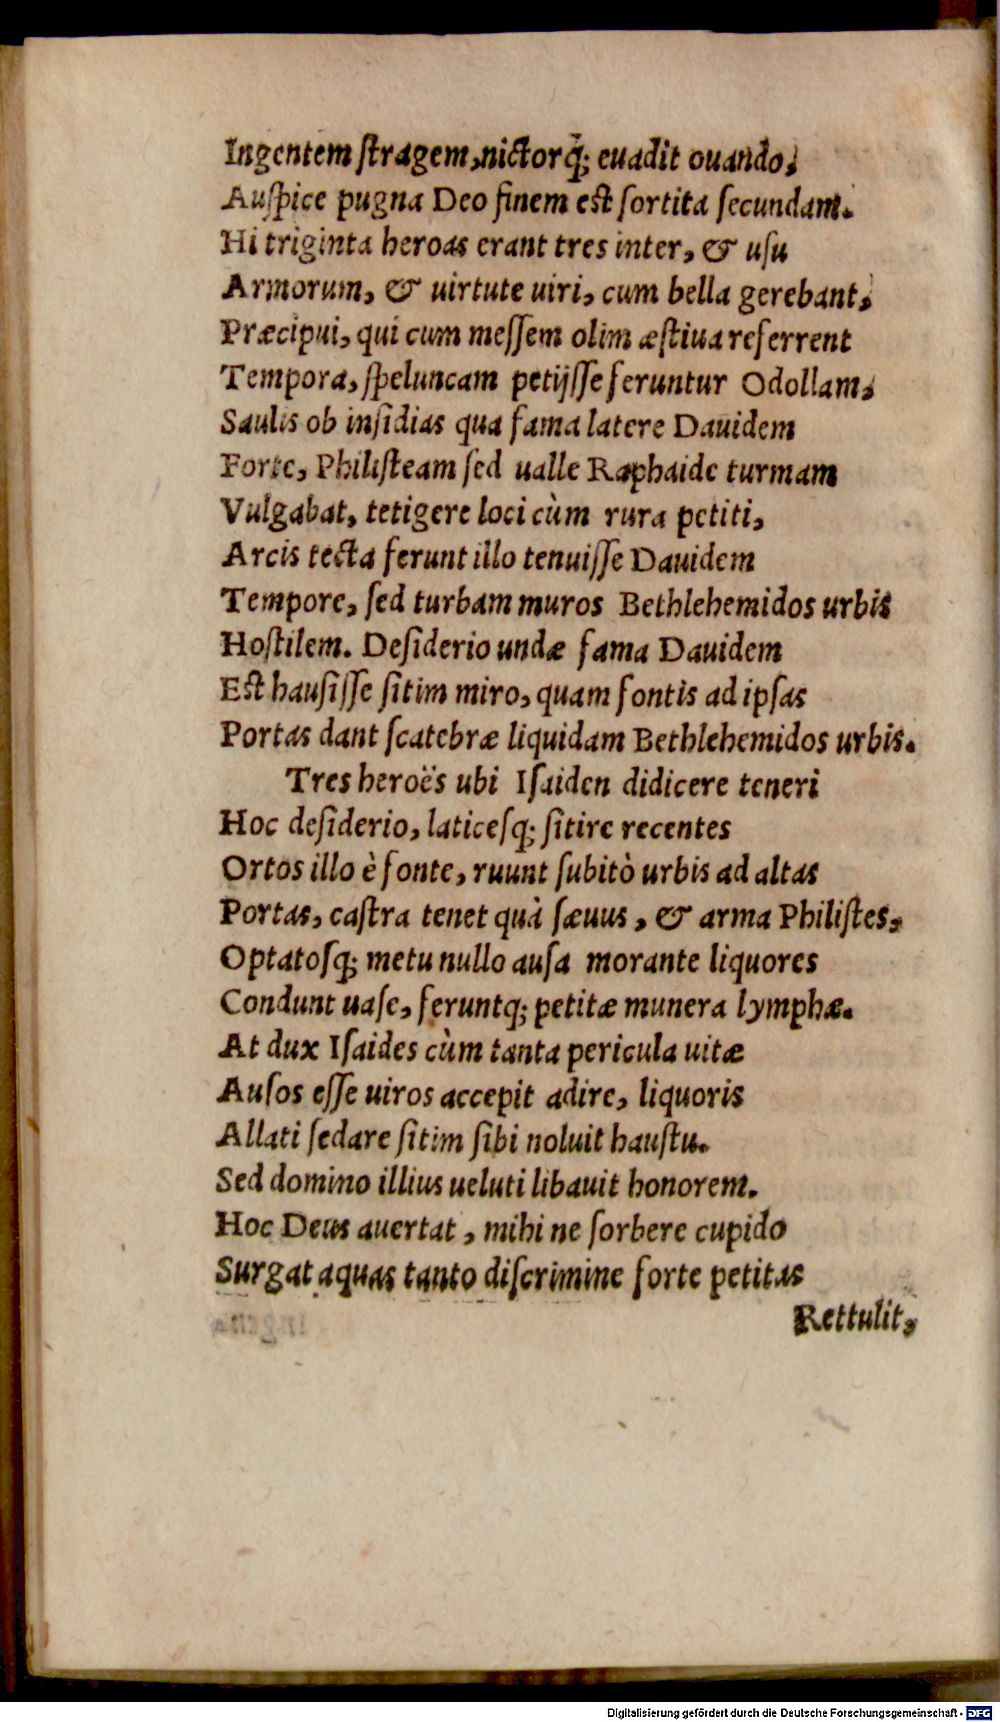 Ingentem ſtragem, uictorq́; euadit ouando,
Auſpice pugna Deo finem eſt ſortita ſecundam.
Hi triginta heroas erant tres inter, & uſu
Armorum, & uirtute uiri, cum bella gerebant,
Præcipui, qui cum meſſem olim æſtiua referrent
Tempora, ſpeluncam petijſſe feruntur Odollam,
Saulis ob inſidias qua fama latere Dauidem
Forte, Philiſteam ſed ualle Raphaide turmam
Vulgabat, tetigere loci cùm rura petiti,
Arcis tecta ferunt illo tenuiſſe Dauidem
Tempore, ſed turbam muros Bethlehemidos urbis
Hoſtilem. Deſiderio undæ fama Dauidem
Eſt hauſiſſe ſitim miro, quam fontis ad ipſas
Portas dant ſcatebræ liquidam Bethlehemidos urbis.
Tres heroës ubi Iſaiden didicere teneri
Hoc deſiderio, laticeſq; ſitire recentes
Ortos illo è fonte, ruunt ſubitò urbis ad altas
Portas, caſtra tenet quà ſæuus, & arma Philiſtes,
Optatoſq; metu nullo auſa morante liquores
Condunt uaſe, feruntq; petitæ munera lymphæ.
At dux Iſaides cùm tanta pericula uitæ
Auſos eſſe uiros accepit adire, liquoris
Allati ſedare ſitim ſibi noluit hauſtu.
Sed domino illius ueluti libauit honorem.
Hoc Deus auertat, mihi ne ſorbere cupido
Surgat aquas tanto diſcrimine forte petitas
Rettulit,
Digitalisierung gefördert durch die Deutsche Forschungsgemeinschaft - DFG